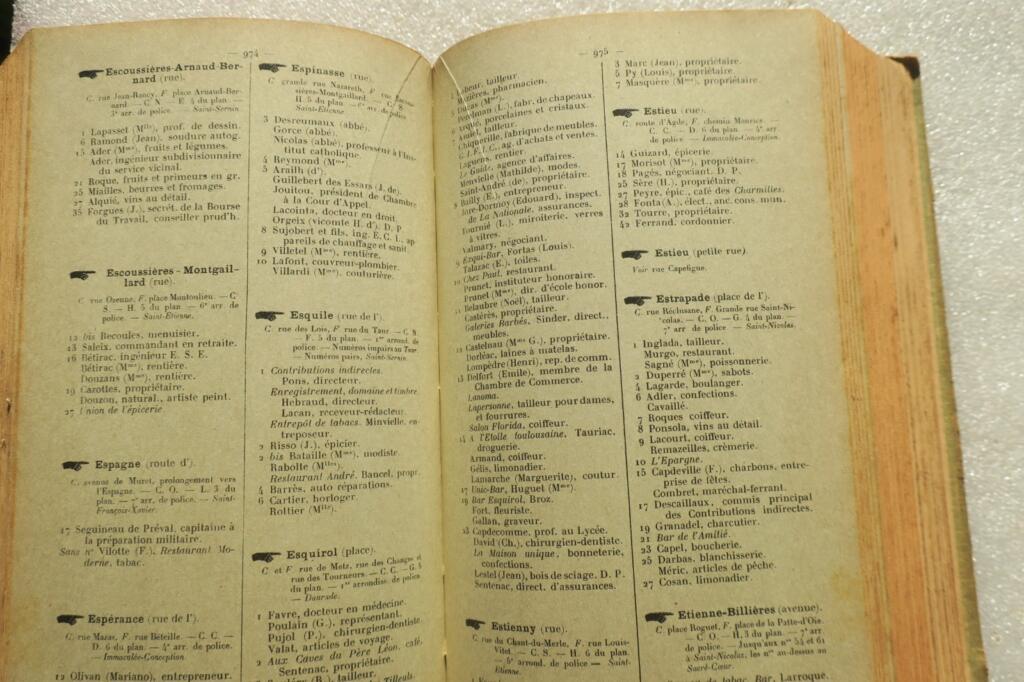 — 974 —
Escoussières-Arnaud-Ber-
nard (rue).
C. rue Jean-Rancy, F. place Arnaud-Ber-
nard. — C. N. — E. 4 du plan. —
3e arr. de police. — Saint-Sernin.
1 Lapasset (Mlle), prof. de dessin.
6 Ramond (Jean), soudure autog.
15 Ader (Mme), fruits et légumes.
Ader, ingénieur subdivisionnaire
du service vicinal.
21 Roque, fruits et primeurs en gr.
25 Miailles, beurres et fromages.
27 Alquié, vins au détail.
35 Forgues (J.), secrét. de la Bourse
du Travail, conseiller prud'h.
Escoussières-Montgail-
lard (rue).
C. rue Ozenne, F. place Montoulieu. — C.
S. — H. 5 du plan. — 6e arr. de
police. — Saint-Etienne.
12 bis Becoules, menuisier.
13 Saleix, commandant en retraite.
16 Bétirac, ingénieur E. S. E.
Bétirac (Mme), rentière.
Douzans (Mme), rentière.
19 Carottes, propriétaire.
Douzon, natural., artiste peint.
27 Union de l'épicerie.
Espagne (route d').
C. avenue de Muret, prolongement vers
l'Espagne. — C. O. — L. 3 du
plan. — 7e arr. de police. — Saint-
François-Xavier.
17 Seguineau de Préval, capitaine à
la préparation militaire.
Sans no Vilotte (F.), Restaurant Mo-
derne, tabac.
Espérance (rue de l').
C. rue Mazas, F. rue Béteille. — C. C. —
D. 6 du plan. — 4e arr. de police.
— Immaculée-Conception.
12 Olivan (Mariano), entrepreneur.
Espinasse (rue).
C. grande rue Nazareth, F. rue Escous-
sières-Montgaillard. — C. S.
H. 5 du plan. — 6e arr. de police
Saint-Etienne.
3 Desreumaux (abbé).
Gorce (abbé).
Nicolas (abbé), professeur à l'Ins-
titut catholique.
4 Reymond (Mme).
5 Arailh (d').
Guillebert des Essars (J. de).
Jouitou, président de Chambre
à la Cour d'Appel.
Lacointa, docteur en droit.
Orgeix (vicomte H. d'). D. P.
8 Sujobert et fils, ing. E. C. L., ap-
pareils de chauffage et sanit.
9 Villetel (Mme), rentière.
10 Lafont, couvreur-plombier.
Villardi (Mme), couturière.
Esquile (rue de l').
C. rue des Lois, F. rue du Taur. — C. S.
— F. 5 du plan. — 1er arrond. de
police. — Numéros impairs au Taur.
— Numéros pairs, Saint-Sernin.
1 Contributions indirectes.
Pons, directeur.
Enregistrement, domaine et timbre.
Hebraud, directeur.
Lacan, receveur-rédacteur.
Entrepôt de tabacs. Minvielle, en-
treposeur.
2 Risso (J.), épicier.
2 bis Bataille (Mme), modiste.
Rabolte (Mlles).
Restaurant André. Bancel, propr.
4 Barrès, auto réparations.
6 Cartier, horloger.
Roltier (Mlle).
Esquirol (place).
C. et F. rue de Metz, rue des Changes et
rue des Tourneurs. — C. C. — G. 5
du plan. — 1er arrondiss. de police.
— Daurade.
1 Favre, docteur en médecine.
Poulain (G.), représentant.
Pujol (P.), chirurgien-dentiste.
Valat, articles de voyage.
2 Aux Caves du Père Léon, café.
Sentenac, propriétaire.
(R.), tailleur.
— 975 —
tailleur.
pharmacien.
(Mme).
fabr. de chapeaux.
porcelaines et cristaux.
tailleur.
Chiqueville, fabrique de meubles.
ag. d'achats et ventes.
Laguens, rentier.
agence d'affaires.
Menvielle (Mathilde), modes.
Saint-André (de), propriétaire.
8 Bailly (E.), entrepreneur.
(Edouard), inspect.
de La Nationale, assurances.
Fournié (L.), miroiterie, verres
à vitres.
Valmary, négociant.
9 Esqui-Bar, Fortas (Louis).
Talazac (E.), toiles.
10 Chez Paul, restaurant.
Prunet, instituteur honoraire.
Prunet (Mme), dir. d'école honor.
Delaubre (Noël), tailleur.
Castérès, propriétaire.
Galeries Barbès. Sinder, direct.,
meubles.
12 Castelnau (Mme G.), propriétaire.
Dorléac, laines à matelas.
Lompédre (Henri), rep. de comm.
13 Delfort (Emile), membre de la
Chambre de Commerce.
Lanoma.
Lapersonne, tailleur pour dames,
et fourrures.
Salon Florida, coiffeur.
14 A l'Etoile toulousaine, Tauriac,
droguerie.
Armand, coiffeur.
Gélis, limonadier.
Lamarche (Marguerite), coutur.
17 Unic-Bar, Huguet (Mme).
19 Bar Esquirol, Broz.
Fort, fleuriste.
Gallan, graveur.
23 Capdecomme, prof. au Lycée.
David (Ch.), chirurgien-dentiste.
La Maison unique, bonneterie,
confections.
Lestel (Jean), bois de sciage. D. P.
Sentenac, direct. d'assurances.
Estienny (rue).
C. rue du Chant-du-Merle, F. rue Louis-
Vitet. — C. S. — H. 6 du plan.
— 5e arrond. de police — Saint-
Etienne.
3 Marc (Jean), propriétaire.
5 Py (Louis), propriétaire.
7 Masquère (Mme), propriétaire.
Estieu (rue).
C. route d'Agde, F. chemin Maurice. —
C. C. — D. 6 du plan. — 4e arr.
de police — Immaculée-Conception.
14 Guizard, épicerie.
17 Morisot (Mme), propriétaire.
18 Pagès, négociant. D. P.
25 Sère (H.), propriétaire.
27 Peyre, épic., café des Charmilles.
28 Fonta (A.), élect., anc. cons. mun.
32 Tourre, propriétaire.
42 Ferrand, cordonnier.
Estieu (petite rue).
Voir rue Capeligue.
Estrapade (place de l').
C. rue Réclusane, F. Grande rue Saint-Ni-
colas. — C. O. — G. 4 du plan. —
7e arr. de police — Saint-Nicolas.
1 Inglada, tailleur.
Murgo, restaurant.
Sagné (Mme), poissonnerie.
2 Duperré (Mme), sabots.
4 Lagarde, boulanger.
6 Adler, confections.
Cavaillé.
7 Roques coiffeur.
8 Ponsola, vins au détail.
9 Lacourt, coiffeur.
Remazeilles, crèmerie.
10 L'Epargne.
15 Capdeville (F.), charbons, entre-
prise de fêtes.
Combret, maréchal-ferrant.
17 Descaillaux, commis principal
des Contributions indirectes.
19 Granadel, charcutier.
21 Bar de l'Amitié.
23 Capel, boucherie.
25 Darbas, blanchisserie.
Méric, articles de pêche.
27 Cosan, limonadier.
Etienne-Billières (avenue).
C. place Roguet, F. place de la Patte-d'Oie.
— C. O. — H. 3 du plan. — 7e arr.
de police. — Jusqu'aux nos 54 et 61
à Saint-Nicolas, les nos au-dessus au
Sacré-Cœur.
tabac. Bar, Larroque.